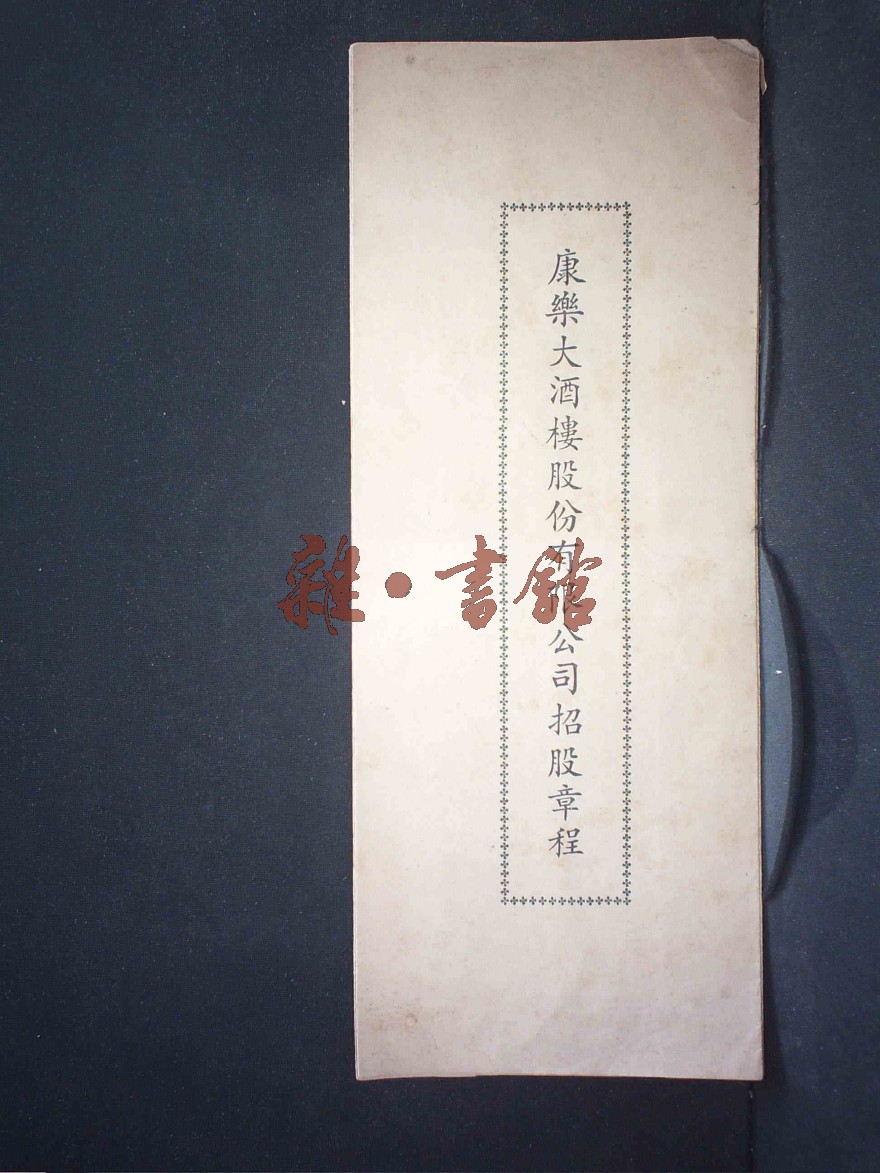 康樂大酒樓股份有限公司招股章程
雜·書館